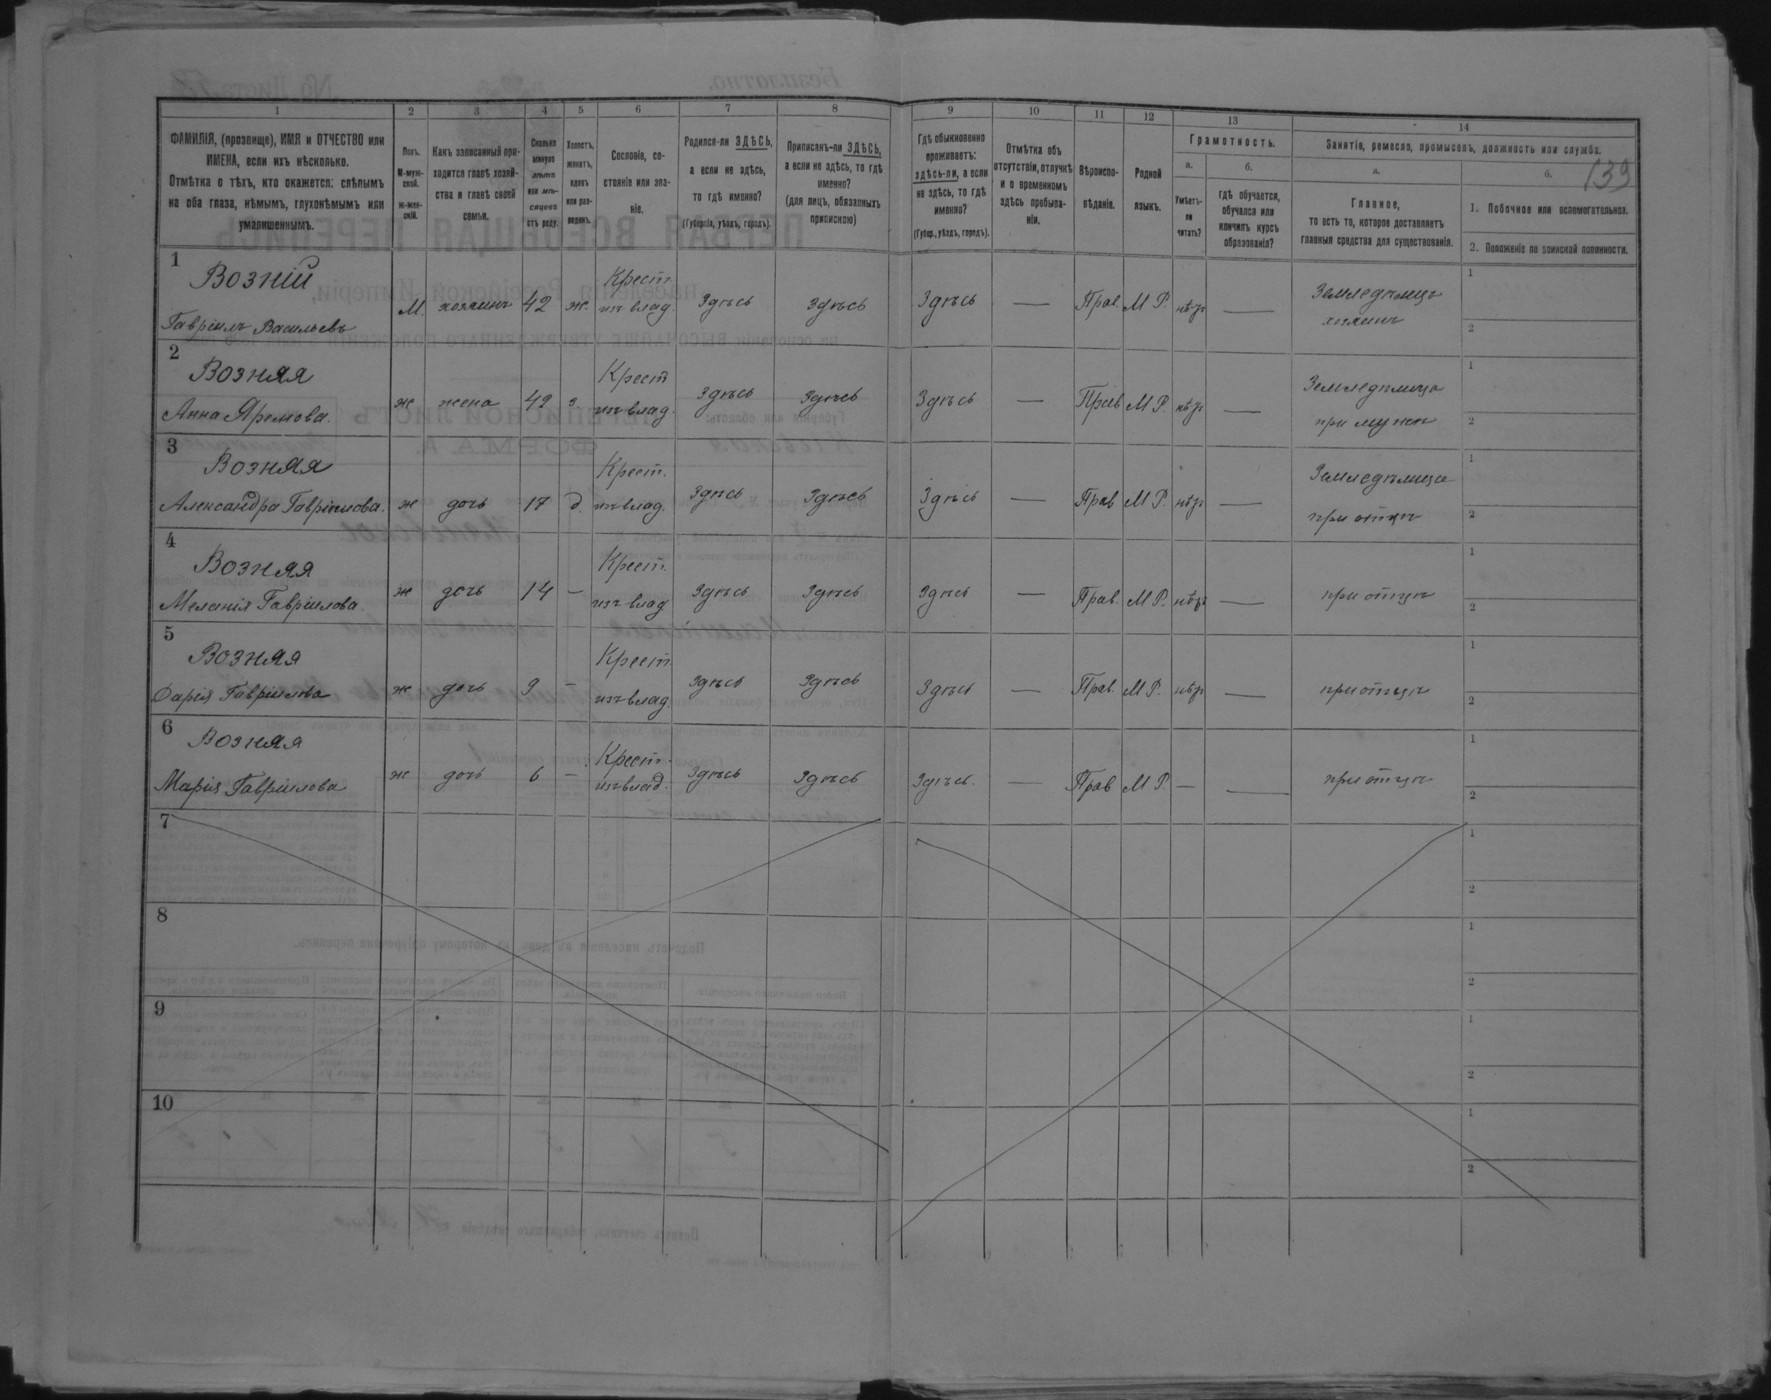 1 2 3 4 5 6 7 8 9 10 11 12 13 14
ФАМИЛІЯ, (прозвище), ИМЯ и ОТЧЕСТВО или
ИМЕНА, если ихъ нѣсколько.
Отмѣтка о тѣхъ, кто окажется: слѣпымъ
на оба глаза, нѣмымъ, глухонѣмымъ или
умалишеннымъ.
Полъ.
М-муж-
ской.
ж-жен-
скій.
Какъ записанный при-
ходится главѣ хозяй-
ства и главѣ своей
семьи.
Сколько
минуло
лѣтъ
или мѣ-
сяцевъ
отъ роду.
Холостъ,
женатъ,
вдовъ
или раз-
веденъ.
Сословіе, со-
стояніе или зва-
ніе.
Родился-ли ЗДѢСЬ,
а если не здѣсь,
то гдѣ именно?
(Губернія, уѣздъ, городъ).
Приписанъ-ли ЗДѢСЬ,
а если не здѣсь, то гдѣ
именно?
(для лицъ, обязанныхъ
припискою)
Гдѣ обыкновенно
проживаетъ:
здѣсь-ли, а если
не здѣсь, то гдѣ
именно?
(Губер., уѣздъ, городъ).
Отмѣтка объ
отсутствіи, отлучкѣ
и о временномъ
здѣсь пребыва-
ніи.
Вѣроиспо-
вѣданіе.
Родной
языкъ.
Грамотность.
а.
Умѣетъ-
ли
читать?
б.
Гдѣ обучается,
обучался или
кончилъ курсъ
образованія?
Занятіе, ремесло, промыселъ, должность или служба.
а.
Главное,
то есть то, которое доставляетъ
главныя средства для существованія.
б.
139
1. Побочное или вспомогательное.
2. Положеніе по воинской повинности.
1
Возній
Гавріилъ Васильевъ
М. хозяинъ 42 ж.
Крест.
изъ влад.
Здѣсь Здѣсь Здѣсь — Прав. М Р. нѣтъ —
Земледѣлецъ
хозяинъ
1
2
2
Возняя
Анна Яремова.
ж жена 42 з
Крест
изъ влад.
Здѣсь Здѣсь Здѣсь — Прав М Р. нѣтъ —
Земледѣлица
при мужѣ
1
2
3
Возняя
Александра Гавріилова.
ж дочь 17 д.
Крест.
изъ влад.
Здѣсь Здѣсь Здѣсь — Прав М Р. нѣтъ —
Земледѣлица
при отцѣ
1
2
4
Возняя
Меланія Гавріилова
ж дочь 14 —
Крест.
изъ влад
Здѣсь Здѣсь Здѣсь — Прав. М Р. нѣтъ —
при отцѣ
1
2
5
Возняя
Дарія Гавріилова
ж дочь 9 —
Крест
изъ влад.
Здѣсь Здѣсь Здѣсь — Прав. М Р. нѣтъ —
при отцѣ
1
2
6
Возняя
Марія Гавріилова
ж дочь 6 —
Крест.
изъ влад.
Здѣсь Здѣсь Здѣсь. — Прав М Р. — —
при отцѣ
1
2
7
1
2
8
1
2
9
1
2
10
1
2